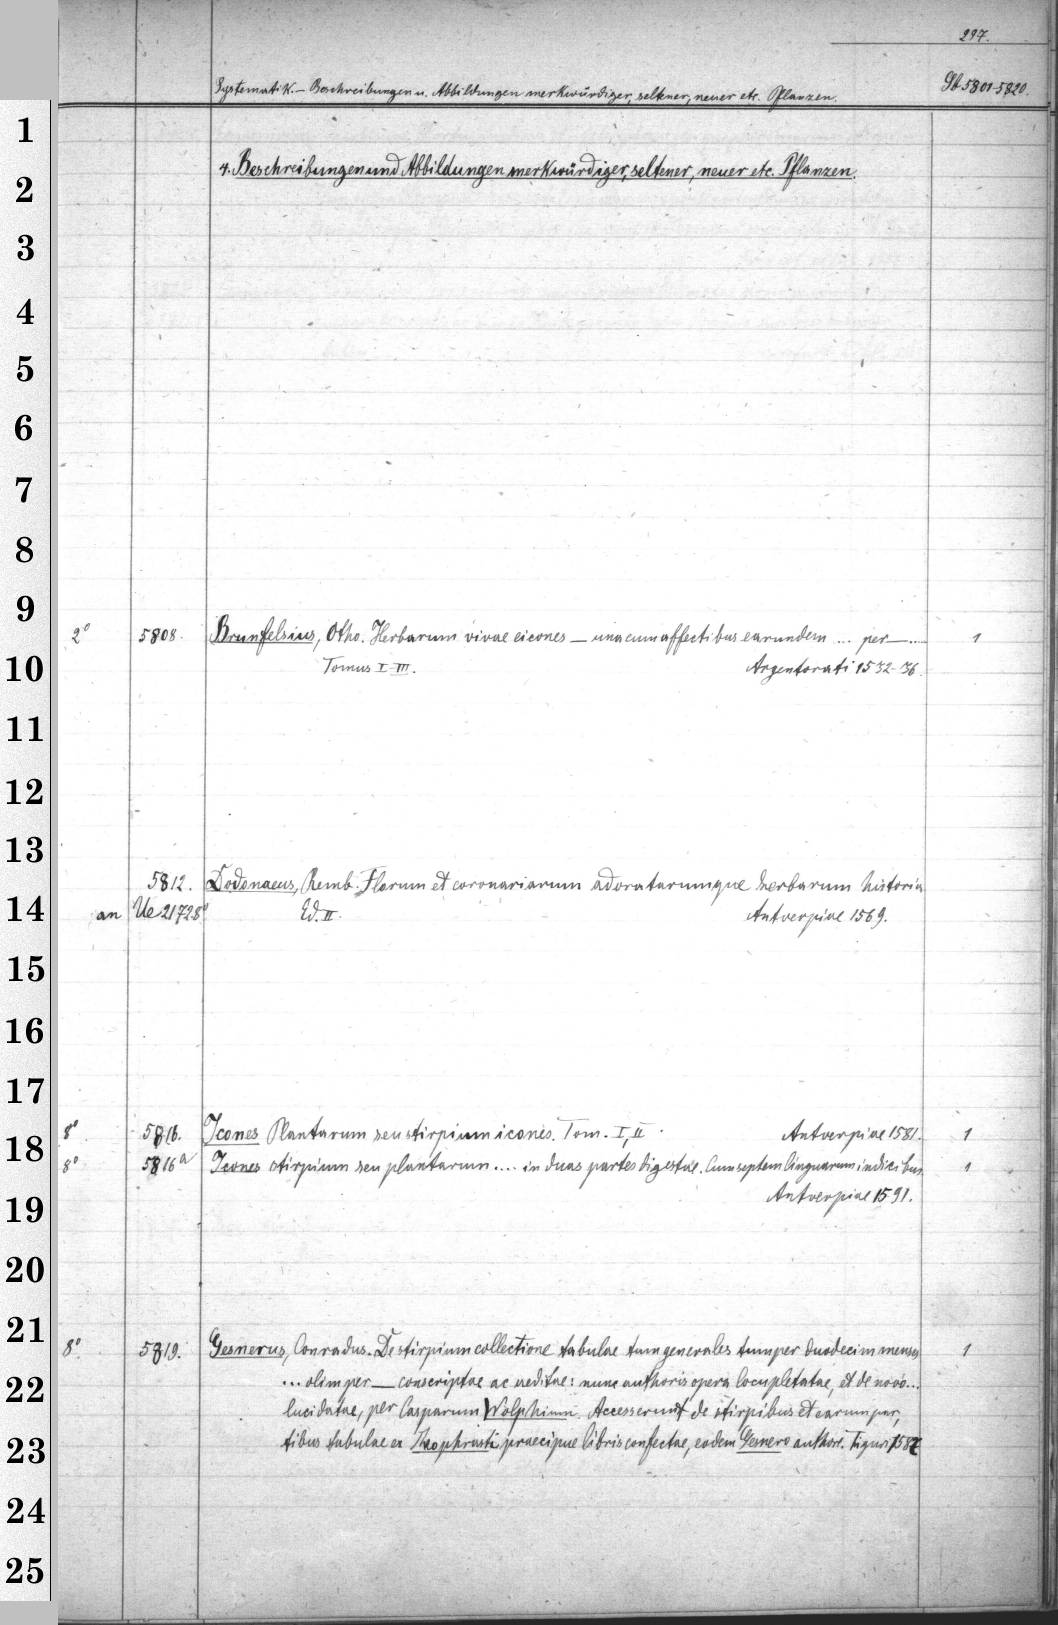 297.
Systematik. – Beschreibungen u. Abbildungen merkwürdiger, seltner, neuer etc. Pflanzen. Gb 5801-5820.
4. Beschreibungen und Abbildungen merkwürdiger, seltener, neuer etc. Pflanzen.
2° 5808. Brunfelsius, Otho. Herbarum vivae eicones — una cum affectibus earundem ... per — .... 1
Tomus I-III. Argentorati 1532-36.
5812. Dodonaeus, Remb. Florum et coronariarum adoratarumque herbarum historia
an Ue 21728° Ed. II. Antverpiae 1569.
8° 5816. Icones Plantarum seu stirpium icones. Tom. I, II. Antverpiae 1581. 1
8° 5816a Icones stirpium seu plantarum .... in duas partes digestae. Cum septem linguarum indicibus. 1
Antverpiae 1591.
8°. 5819. Gesnerus, Conradus. De stirpium collectione tabulae tum generales tum per duodecim menses 1
... olim per — conscriptae ac aeditae: nunc authoris opera locupletatae, et de novo ...
lucidatae, per Casparum Wolphium. Accesserunt de stirpibus et earum par,
tibus tabulae ex Theophrasti praecipue libris confectae, eodem Gesnero authore. Tiguri 1587
1
2
3
4
5
6
7
8
9
10
11
12
13
14
15
16
17
18
19
20
21
22
23
24
25